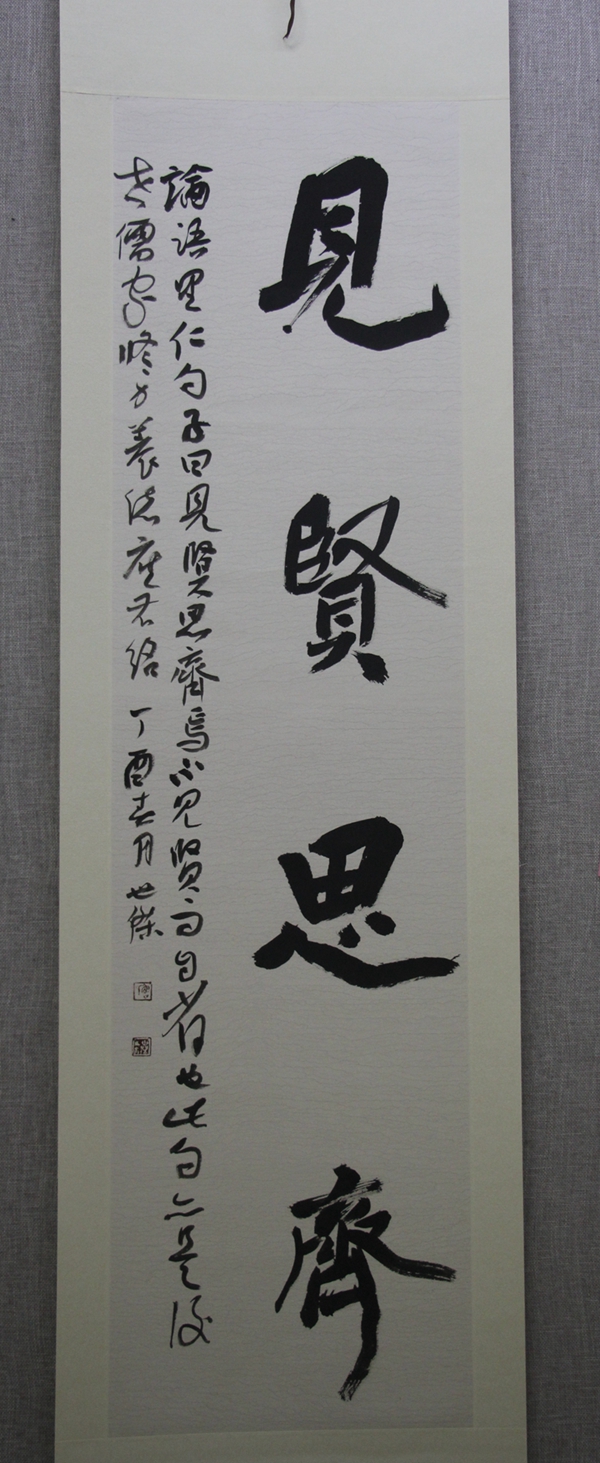 見賢思齊
論語里仁句子曰見賢思齊焉不見賢而自省也此句亦是後
世儒家修身養德座右銘 丁酉春月世傑